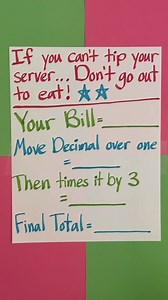 If you can't tip your
server... Don't go out
to eat!
Your Bill=
Move Decimal over one
=
Then times it by 3
=
Final Total=